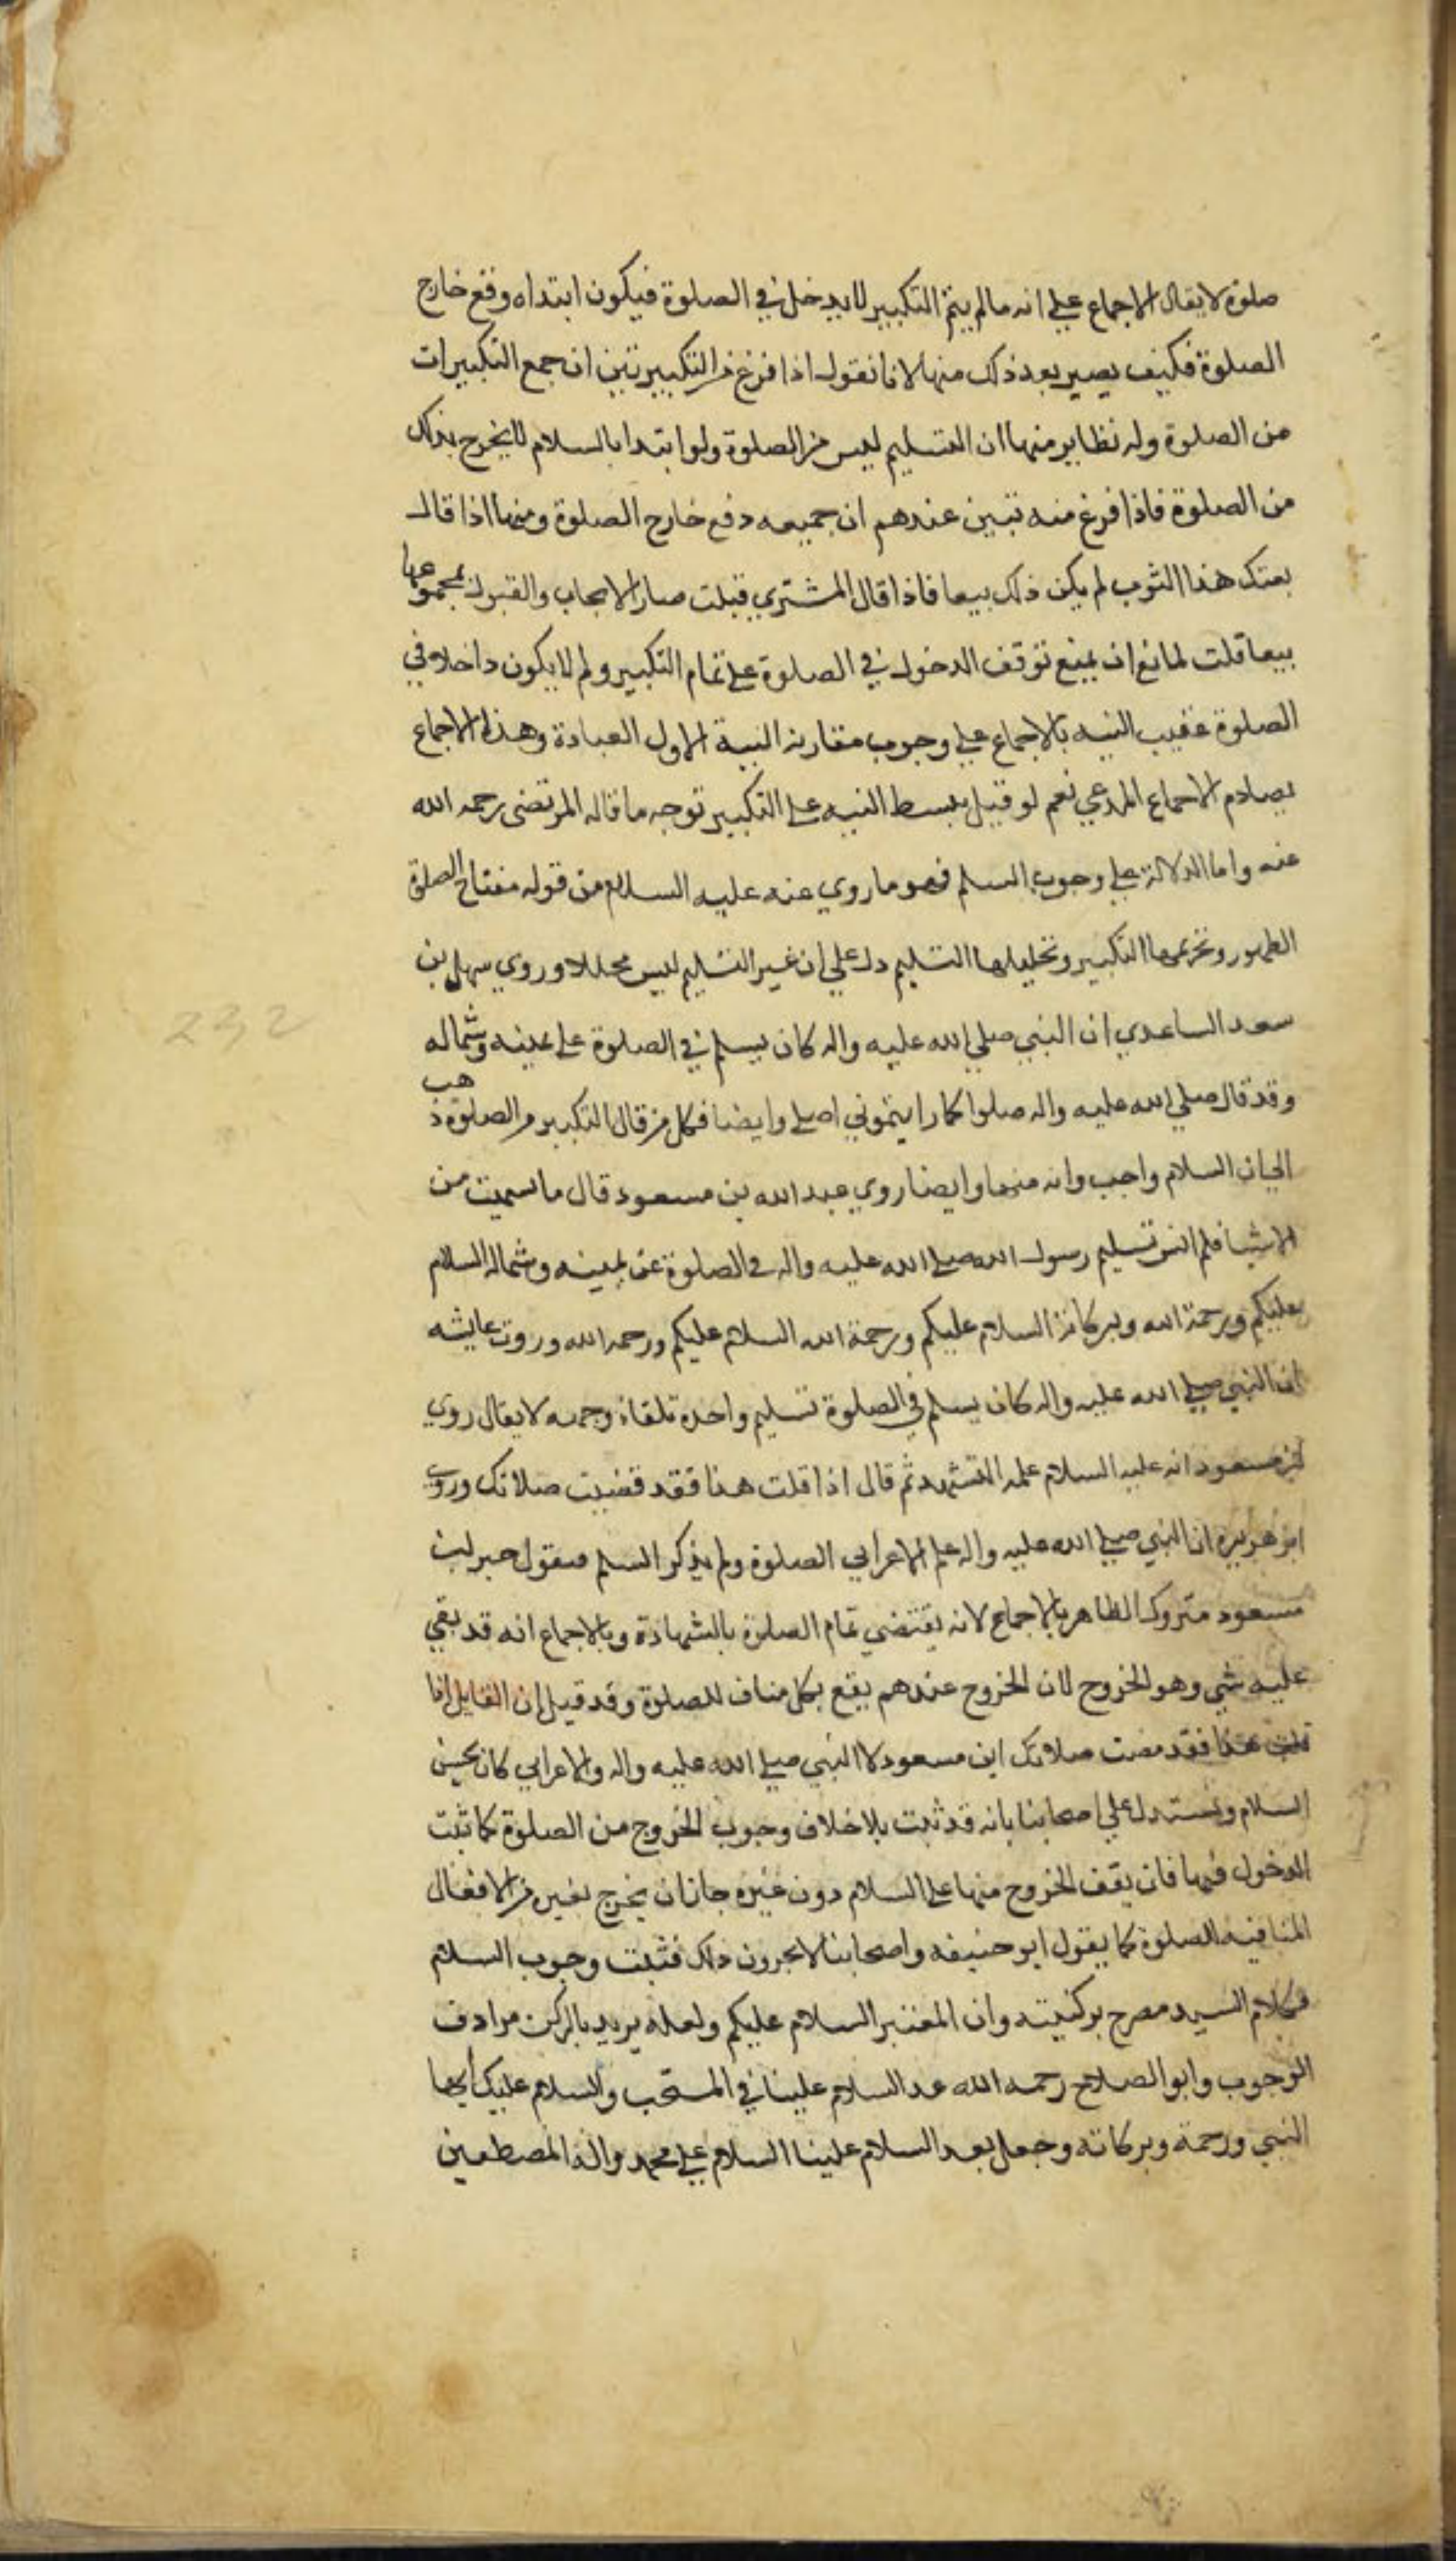 صلوة لا يقال الاجماع علي انه ما لم يتم التكبير لا يدخل في الصلوة فيكون ابتداه وقع خارج
الصلوة فكيف يصير بعد ذلك منها لانا نقول اذا فرغ من التكبير تبين ان جمع التكبيرات
من الصلوة وله نظاير منها ان التسليم ليس من الصلوة ولو ابتدا بالسلام لا يخرج بذلك
من الصلوة فاذا فرغ منه تبين عندهم ان جميعه دفع خارج الصلوة ومنها اذا قال
بعتك هذا الثوب لم يكن ذلك بيعا فاذا قال المشتري قبلت صار الايجاب والقبول بمجموعها
بيعا قلت لمانع ان يمنع توقف الدخول في الصلوة علي تمام التكبير ولم لا يكون داخلا في
الصلوة عقيب النيه بالاجماع علي وجوب مقارنة النية لاول العبادة وهذا الاجماع
يصادم الاجماع المدعي نعم لو قيل ببسط النيه علي التكبير توجه ما قاله المرتضى رحمه الله
عنه واما الدلالة علي وجوب السلم فهو ما روي عنه عليه السلام من قوله مفتاح الصلوة
الطهور وتحريمها التكبير وتحليلها التسليم دل علي ان غير التسليم ليس محللا وروي سهل بن
سعد الساعدي ان النبي صلي الله عليه واله كان يسلم في الصلوة علي يمينه وشماله
وقد قال صلي الله عليه واله صلوا كما رايتموني اصلي وايضا فكل من قال التكبير من الصلوة ذهب
الي ان السلام واجب وانه منها وايضا روي عبد الله بن مسعود قال ما نسيت من
الاشيا فلم انس تسليم رسول الله صلي الله عليه واله في الصلوة عن يمينه وشماله السلام
عليكم ورحمة الله وبركاته السلام عليكم ورحمة الله السلام عليكم ورحمه الله وروت عايشه
ان النبي صلي الله عليه واله كان يسلم في الصلوة تسليم واحدة تلقاء وجهه لا يقال روي
ابن مسعود انه عليه السلام علمه التشهد ثم قال اذا قلت هذا فقد قضيت صلاتك وروي
ابو هريره ان النبي صلي الله عليه واله علم الاعرابي الصلوة ولم يذكر السلم فنقول خبر ابن
مسعود متروك الظاهر بالاجماع لانه يقتضي تمام الصلوة بالشهادة وبالاجماع انه قد بقي
عليه شي وهو الخروج لان الخروج عندهم يقع بكل مناف للصلوة وقد قيل ان القايل اذا
قلت هذا فقد مضت صلاتك ابن مسعود لا النبي صلي الله عليه واله والاعرابي كان يحسن
السلام ويستدل علي اصحابنا بانه قد ثبت بلا خلاف وجوب الخروج من الصلوة كما ثبت
الدخول فيها فان يقف الخروج منها علي السلام دون غيره جاز ان يخرج بغير من الافعال
المنافيه الصلوة كما يقول ابو حنيفه واصحابنا لا يجرون ذلك فثبت وجوب السلام
فكلام السيد مصرح بركنيته وان المعتبر السلام عليكم ولعله يريد بالركن مرادف
الوجوب وابو الصلاح رحمه الله عد السلام علينا في المستحب والسلام عليك ايها
النبي ورحمة وبركاته وجعل بعد السلام علينا السلام علي محمد واله المصطفين
232